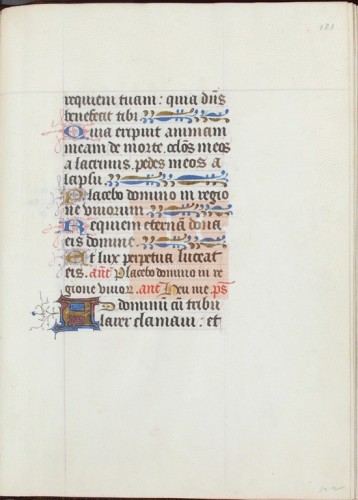 181
requiem tuam: quia dn̄s
benefecit tibi
Quia eripuit animam
meam de morte. ocl̄os meos
a lacrimis. pedes meos a
lapsu.
Placebo domino in regio
ne vivorum
Requiem eternā dona
eis domine.
Et lux perpetua luceat
eis. an̄t Placebo domino in re
gione vivor. an̄t Heu me. ps̄
Ad dominū cū tribu
larer clamavi: et